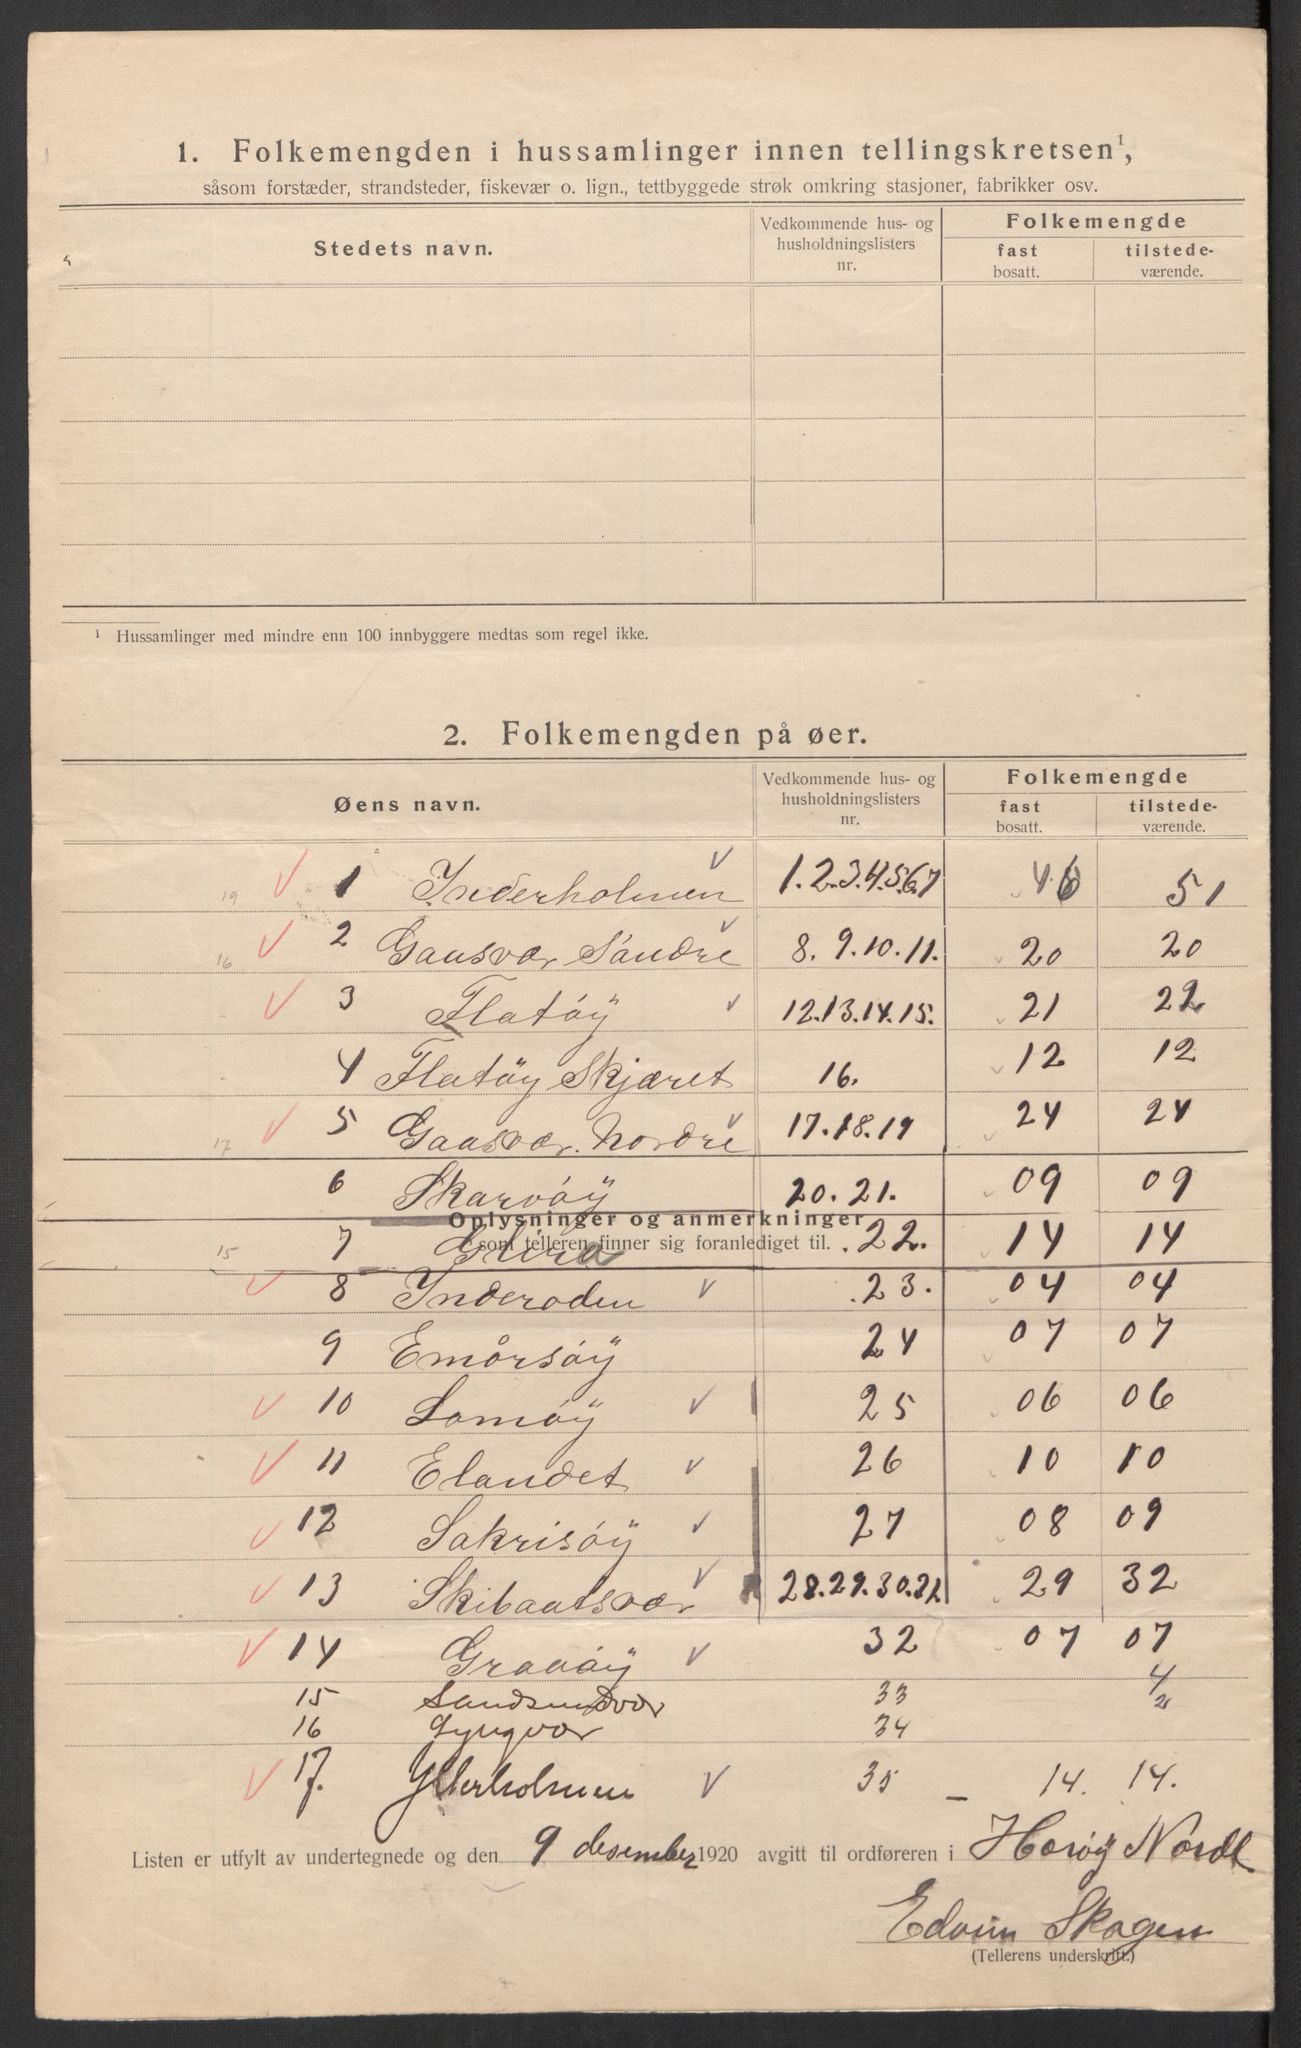 1. Folkemengden i hussamlinger innen tellingskretsen¹,
såsom forstæder, strandsteder, fiskevær o. lign., tettbyggede strøk omkring stasjoner, fabrikker osv.
Stedets navn. Vedkommende hus- og husholdningslisters nr. Folkemengde
fast bosatt. tilstede-værende.
¹ Hussamlinger med mindre enn 100 innbyggere medtas som regel ikke.
2. Folkemengden på øer.
Øens navn. Vedkommende hus- og husholdningslisters nr. Folkemengde
fast bosatt. tilstede-værende.
19 1 Inderholmen 1.2.3.4.5.6.7 46 51
16 2 Gaasvær Søndre 8. 9.10.11. 20 20
3 Flatöÿ 12.13.14.15. 21 22
4 Flatöÿ Skjæret 16. 12 12
17 5 Gaasvær. Nordre 17.18.19 24 24
6 Skarvöÿ 20.21. 09 09
Oplysninger og anmerkninger
som telleren finner sig foranlediget til.
15 7 .22. 14 14
8 Inderoden .23. 04 04
9 Emårsöÿ 24 07 07
10 Lamöÿ 25 06 06
11 Elandet 26 10 10
12 Sakrisöÿ 27 08 09
13 Skibaatsvær 28.29.30.31. 29 32
14 Graaöÿ 32 07 07
15 Sandsundvær 33 4
16 Lyngvær 34 2
17. Ytterholmen 35 – 14. 14.
Listen er utfylt av undertegnede og den 9 desember 1920 avgitt til ordføreren i Herøÿ Nordl
Edvin Skogen
(Tellerens underskrift.)